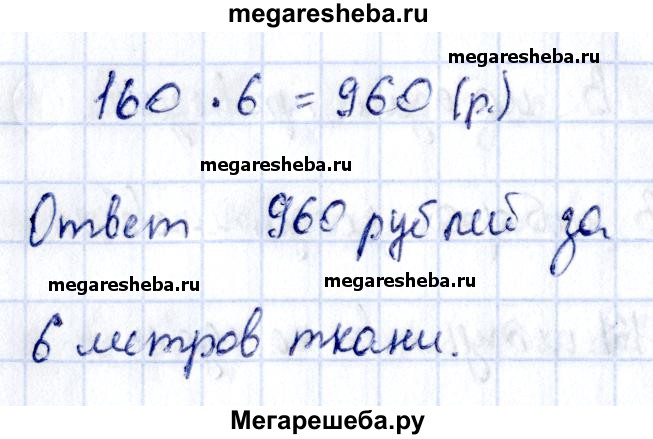 megaresheba.ru
megaresheba.ru
160 · 6 = 960 (р.)
megaresheba.ru
Ответ 960 рублей за
megaresheba.ru megaresheba.ru
6 метров ткани.
Мегарешеба.ру